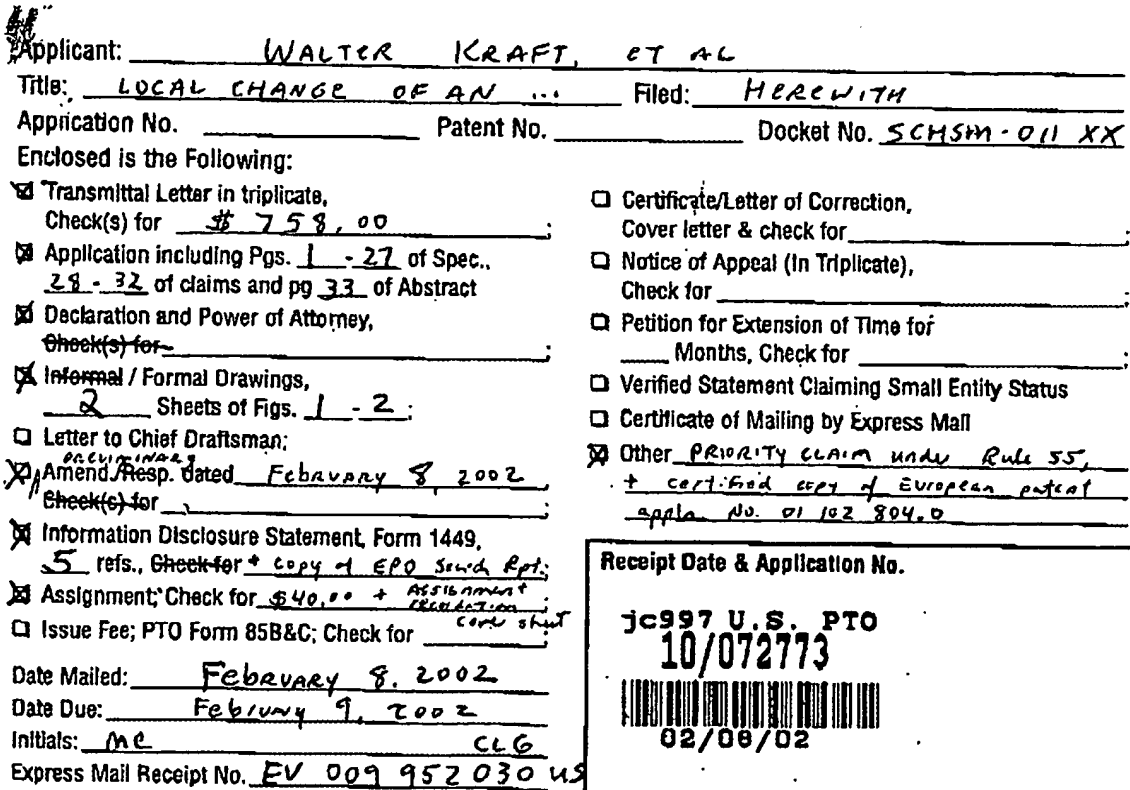 Applicant: WALTER KRAFT, ET AL
Title: LOCAL CHANGE OF AN ... Filed: HEREWITH
Application No. Patent No. Docket No. SCHSM-011 XX
Enclosed is the Following:
Transmittal Letter in triplicate,
Check(s) for $ 758,00 ;
Application including Pgs. 1 - 27 of Spec.,
28 - 32 of claims and pg 33 of Abstract
Declaration and Power of Attorney,
Check(s) for ;
Informal / Formal Drawings,
2 Sheets of Figs. 1 - 2 ;
Letter to Chief Draftsman;
PRELIMINARY
Amend./Resp. dated February 8, 2002
Check(s) for ;
Information Disclosure Statement, Form 1449,
5 refs., Check for + copy of EPO Search Rpt.;
Assignment; Check for $40.00 + Assignment recordation cover sheet ;
Issue Fee; PTO Form 85B&C; Check for ;
Date Mailed: February 8, 2002
Date Due: February 9, 2002
Initials: MC CLG
Express Mail Receipt No. EV 009 952 030 US
Certificate/Letter of Correction,
Cover letter & check for ;
Notice of Appeal (In Triplicate),
Check for ;
Petition for Extension of Time for
Months, Check for ;
Verified Statement Claiming Small Entity Status
Certificate of Mailing by Express Mail
Other PRIORITY CLAIM under Rule 55,
+ certified copy of European patent
appln. No. 01 102 804.0
Receipt Date & Application No.
jc997 U.S. PTO
10/072773
02/08/02